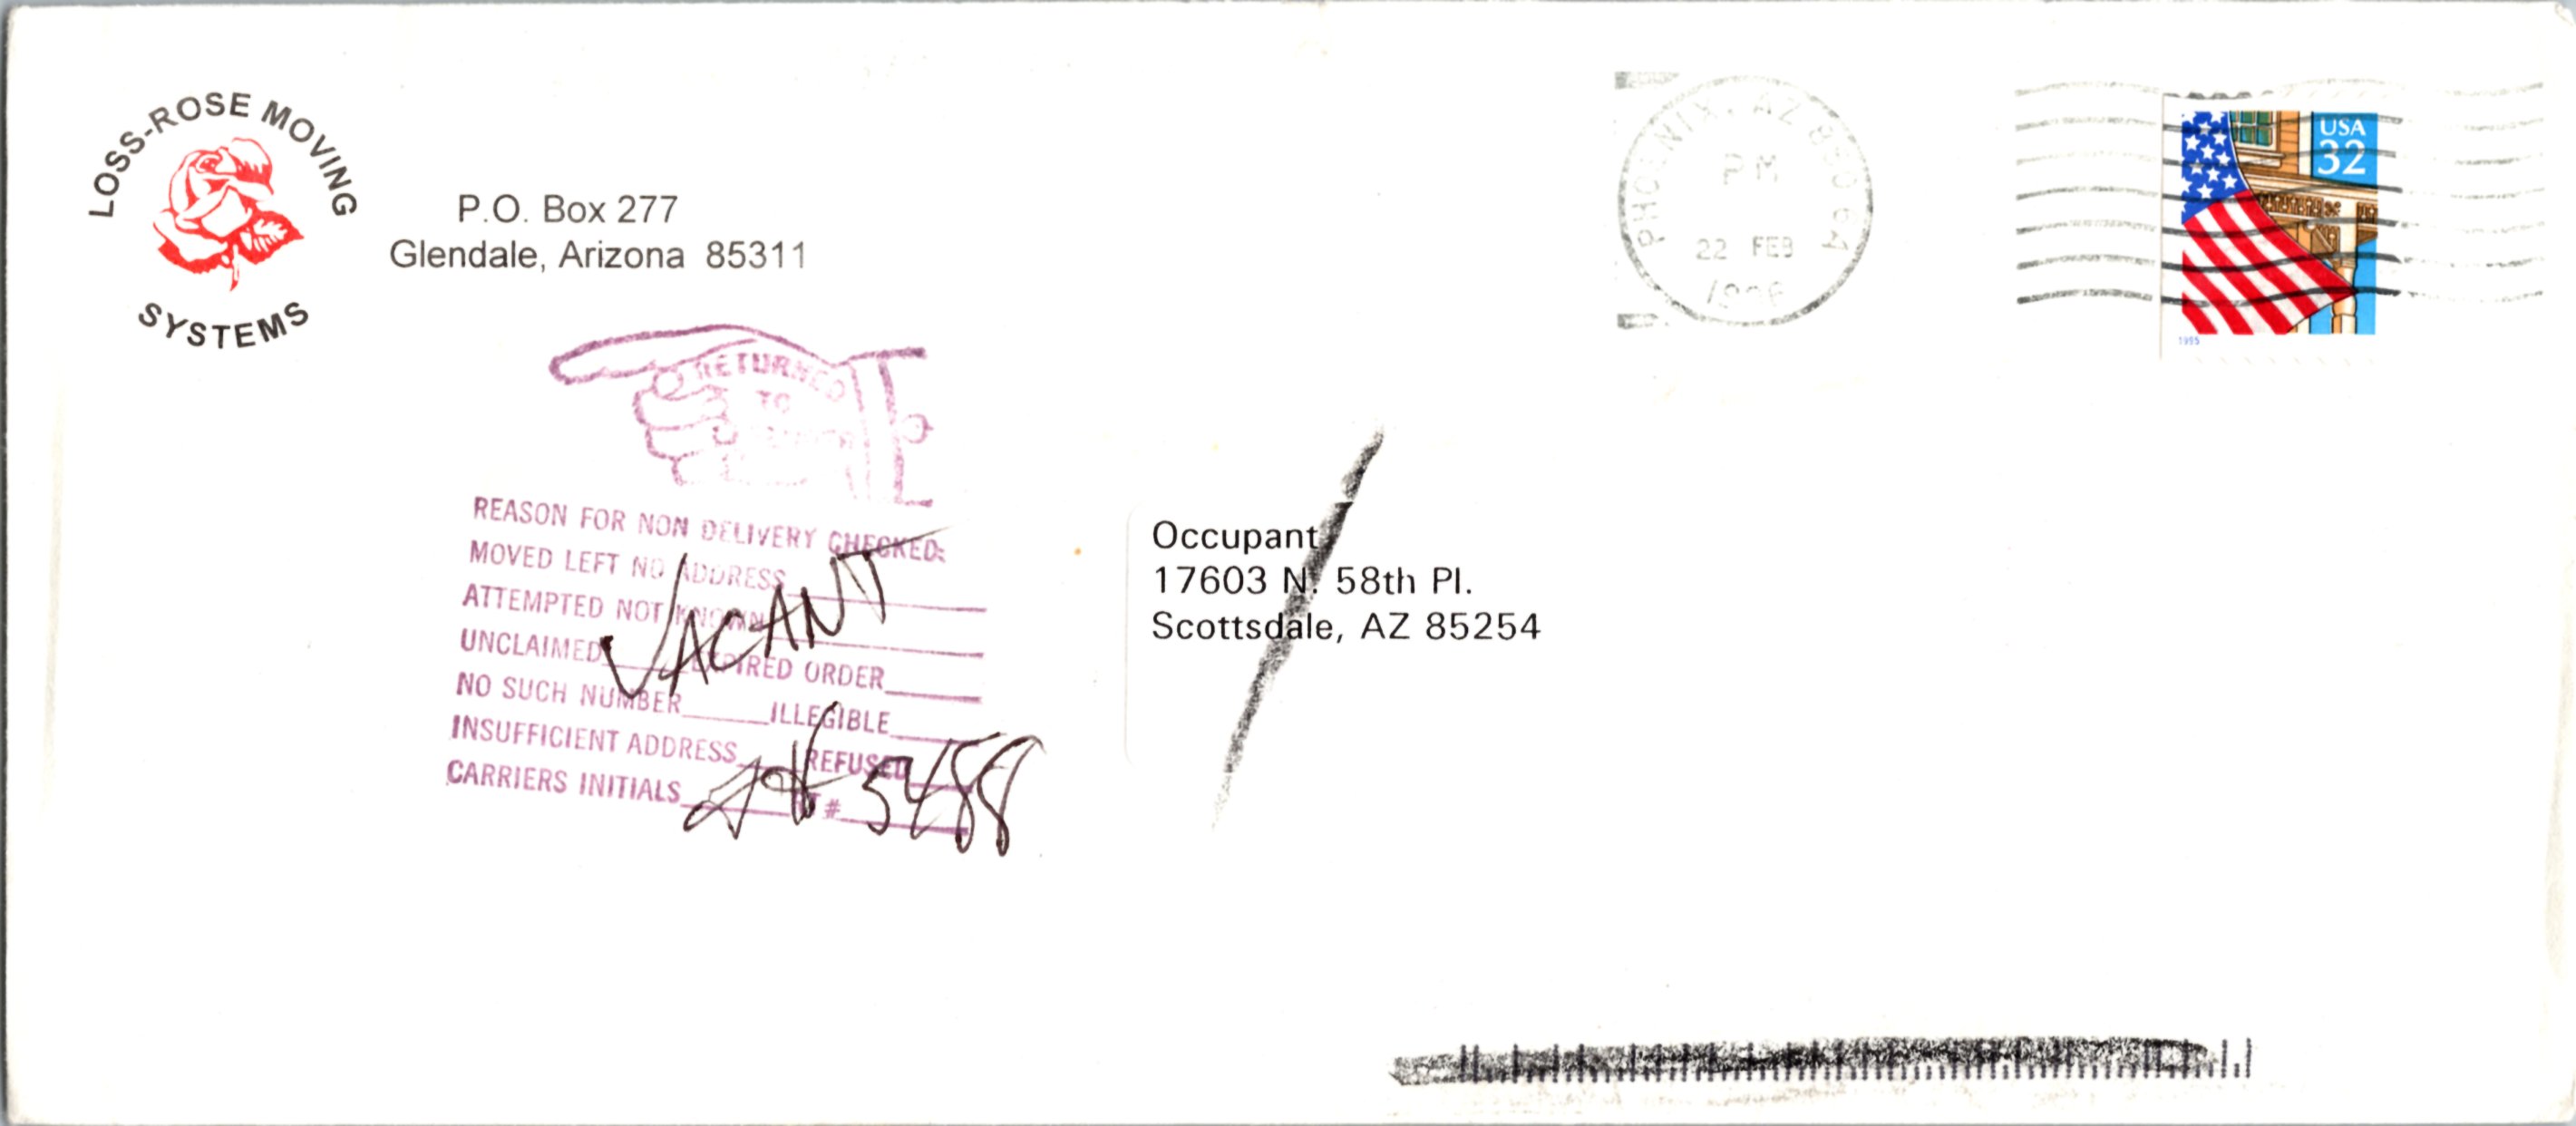 LOSS-ROSE MOVING
SYSTEMS
P.O. Box 277
Glendale, Arizona 85311
PHOENIX, AZ 850
PM
22 FEB
1996
USA
32
1995
RETURNED
TO
REASON FOR NON DELIVERY CHECKED:
MOVED LEFT NO ADDRESS
ATTEMPTED NOT KNOWN
VACANT
UNCLAIMED EXPIRED ORDER
NO SUCH NUMBER ILLEGIBLE
INSUFFICIENT ADDRESS REFUSED
CARRIERS INITIALS # 5488
Occupant
17603 N. 58th Pl.
Scottsdale, AZ 85254